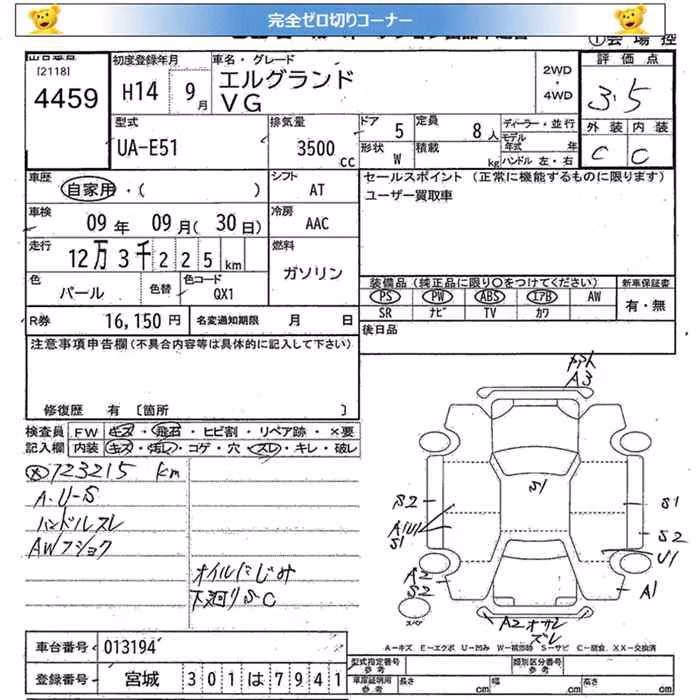 完全ゼロ切りコーナー
[2118]
4459
初度登録年月
H14 9月
車名・グレード
エルグランド
VG
2WD
・
4WD
評価点
3.5
外装 内装
C C
型式
UA-E51
排気量
3500 cc
ドア 5
定員 8人
形状 W
積載 kg
ディーラー・並行
モデル年式 年
ハンドル 左・右
車歴
自家用・( )
シフト
AT
セールスポイント (正常に機能するものに限ります)
ユーザー買取車
車検
09年 09月(30日)
冷房
AAC
走行
12万3千225km
燃料
ガソリン
色
パール
色替
色コード
QX1
装備品(純正品に限り〇をつけてください)
PS PW ABS エアB AW
SR ナビ TV カワ
新車保証書
有・無
R券 16,150円
名変通知期限 月 日
後日品
注意事項申告欄(不具合内容等は具体的に記入して下さい)
修復歴 有 [箇所 ]
検査員記入欄
FW キズ・飛石・ヒビ割・リペア跡・×要
内装 キズ・汚レ・コゲ・穴・スレ・キレ・破レ
123215 km
A・U-S
ハンドルスレ
AWフショク
オイルにじみ
下廻りSC
A3
S1
S2
A1U1
S1
S1
S2
U1
A2
S2
A1
スペア
A2オサレ
ズレ
A-キズ E-エクボ U-凹み W-補修跡 S-サビ C-腐蝕、XX-交換済
車台番号 013194
登録番号 宮城 301は7941
型式指定番号
参考
類別区分番号
参考
車庫証明用
参考
長さ cm
幅 cm
高さ cm